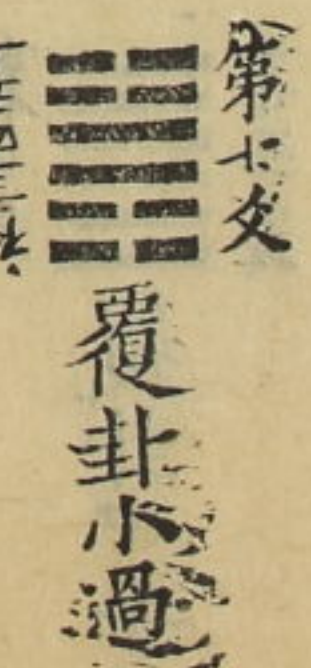 第七爻
覆卦小過